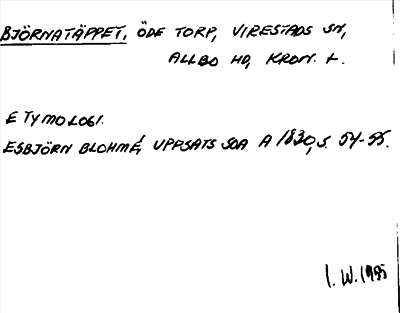 BJÖRNATÄPPET, ÖDE TORP, VIRESTADS SN,
ALLBO HD, KRON. L.
ETYMOLOGI.
ESBJÖRN BLOHMÉ, UPPSATS SOA A 1830, S. 54-55.
I. W. 1985